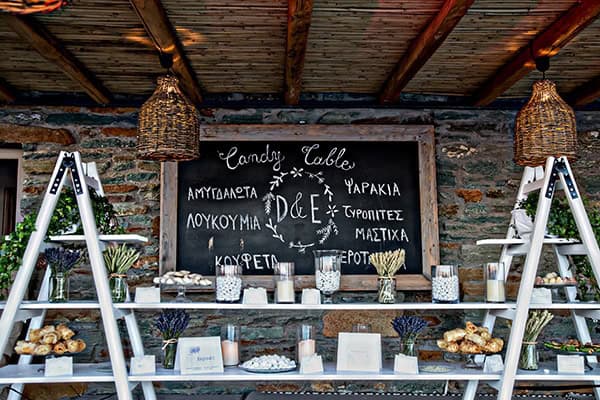 Candy Table
ΑΜΥΓΔΑΛΩΤΑ
ΛΟΥΚΟΥΜΙΑ
ΚΟΥΦΕΤΑ
D&E
ΨΑΡΑΚΙΑ
ΤΥΡΟΠΙΤΕΣ
ΜΑΣΤΙΧΑ